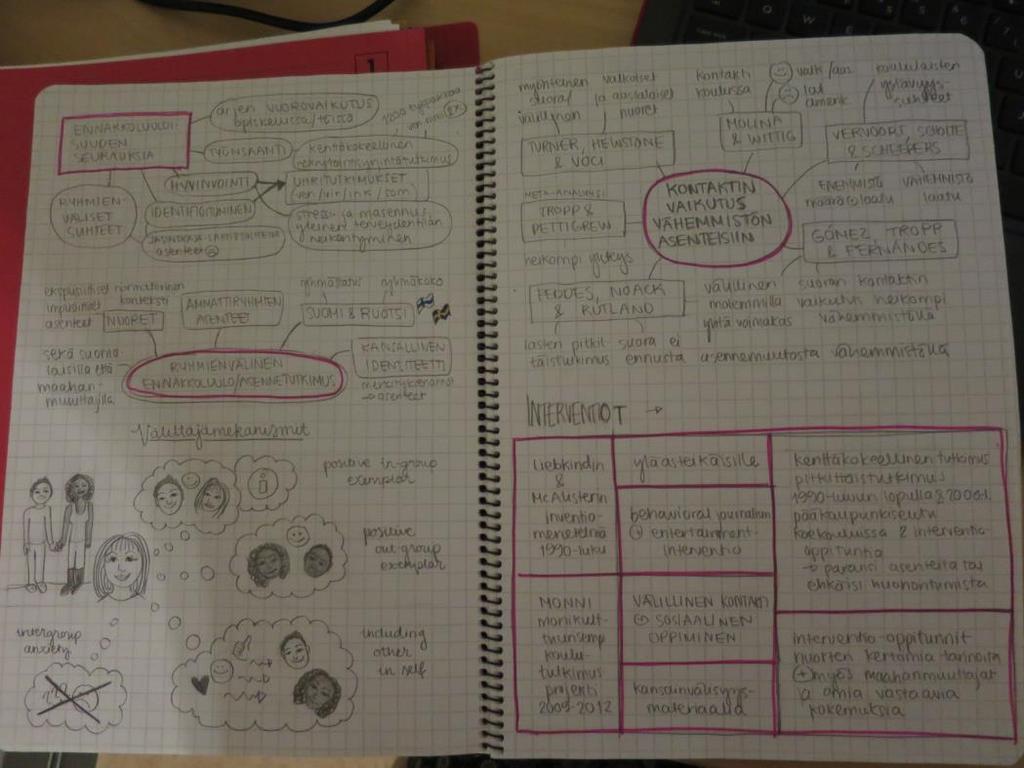 1
ENNAKKOLUULOI-
SUUDEN
SEURAUKSIA
arjen VUOROVAIKUTUS
opiskelussa/töissä
TYÖNSAANTI
kenttäkokeellinen
HYVINVOINTI
UHRITUTKIMUKSET
IDENTIFIOITUMINEN
stressi ja masennus,
yleinen terveydentilan
heikentyminen
RYHMIEN-
VÄLISET
SUHTEET
asenteet
normatiivinen
konteksti
asenteet
NUORET
AMMATTIRYHMIEN
ASENTEET
ryhmästatus ryhmäkoko
SUOMI & RUOTSI
sekä suoma-
laisilla että
maahan-
muuttajilla
RYHMIENVÄLINEN
ENNAKKOLUULO/ASENNETUTKIMUS
KANSALLINEN
IDENTITEETTI
→ asenteet
Välittäjämekanismit
positive in-group
exemplar
positive
out-group
exemplar
including
other
in self
intergroup
anxiety
myönteinen
suora/
välillinen
valkoiset
ja aasialaiset
nuoret
kontakti
koulussa
valk/aas
lat
amerik
koululaisten
ystävyys-
suhteet
TURNER, HEWSTONE
& VOCI
MOLINA
& WITTIG
VERVOORT, SCHOLTE
& SCHEEPERS
META-ANALYYSI
TROPP &
PETTIGREW
heikompi yhteys
KONTAKTIN
VAIKUTUS
VÄHEMMISTÖN
ASENTEISIIN
ENEMMISTÖ
määrä + laatu
VÄHEMMISTÖ
laatu
GÓMEZ, TROPP
& FERNANDES
FEDDES, NOACK
& RUTLAND
välillinen
molemmilla
yhtä voimakas
suoran kontaktin
vaikutus heikompi
vähemmistöllä
lasten pitkit suora ei
täistutkimus ennusta asennemuutosta vähemmistöllä
INTERVENTIOT →
LIEBKINDIN
&
MCALISTERIN
inventio-
menetelmä
1990-luku
yläasteikäisille
behavioral journalism
+ entertainment-
interventio
kenttäkokeellinen tutkimus
pitkittäistutkimus
1990-luvun lopulla & 2000-l.
pääkaupunkiseutu
koekouluissa 2 interventio-
oppituntia
→ paransi asenteita tai
ehkäisi huonontumista
MONNI
monikult-
tuurisemp.
koulu-
tutkimus
projekti
2009-2012
VÄLILLINEN KONTAKTI
+ SOSIAALINEN
OPPIMINEN
kansainvälisyys-
materiaalia
interventio-oppitunnit
nuorten kertomia tarinoita
+ myös maahanmuuttajat
ja omia vastaavia
kokemuksia